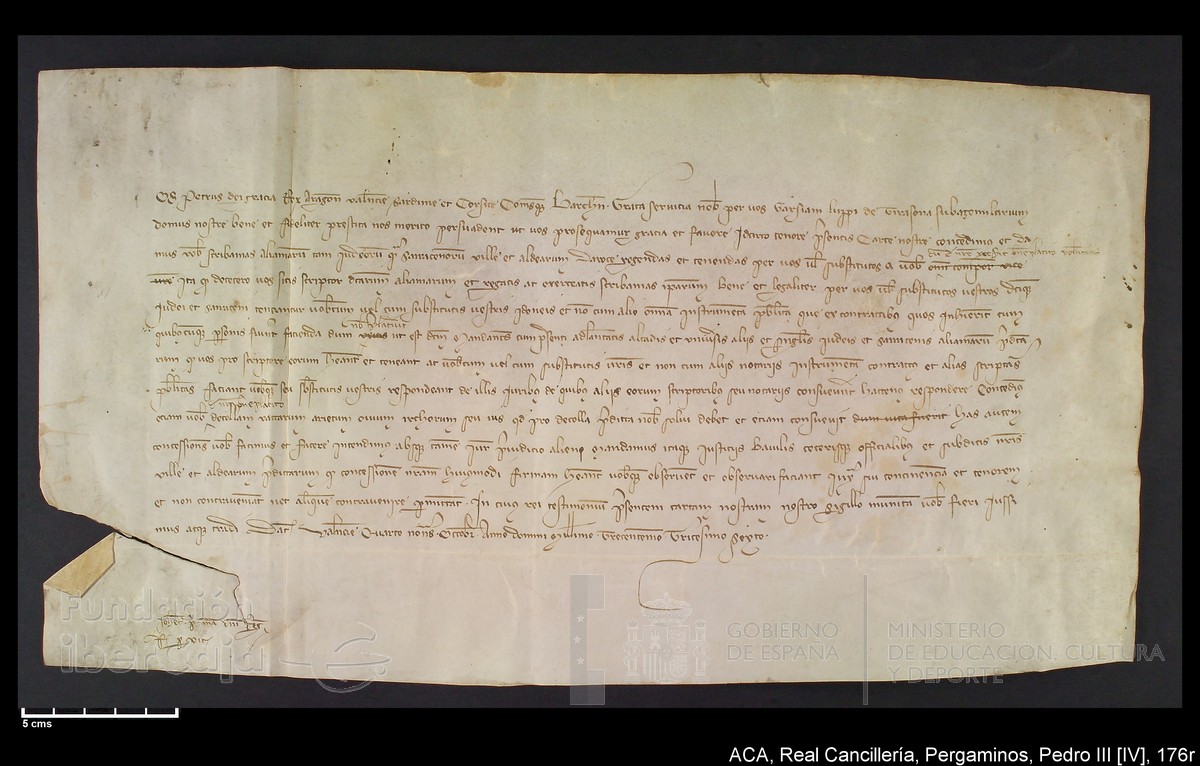 Nos Petrus dei gracia Rex Aragon Valencie Sardinie et Corsice Comesq Barchn. Grata servicia nob per vos Garsiam luppi de Tirasona subatemblarium
domus nostre bene et fideliter prestita nos merito persuadent ut vos prosequamur gracia et favore Idcirco tenore presentis Carte nostre concedimus et da
mus vob scribanias aliamarum tam Judeorum qm sarracenorum ville et aldearum Daroce regendas et tenendas per vos vel substitutos a vob
Ita q decetero vos sitis scriptor dictarum aliamarum et regatis ac exerceatis scribanias ipsarum bene et legaliter per vos vel substitutos vestros dictiq
Judei et sarraceni teneantur vobiscum vel cum substitutis vestris idoneis et non cum alio omnia instrumenta publica que ex contractibus quos inhierint cum
quibuscumq personis fuerint facienda dum ut est dictum Mandantes cum presenti adelantatis alcadis et universis aliis et singulis Judeis et sarracenis aliamarum predicta
rum q vos pro scriptore eorum habeant et teneant ac vobiscum vel cum substitutis vestris et non cum aliis notariis Instrumenta contractus et alias scripturas
publicas faciant vobisq seu substitutis vestris respondeant de illis Juribus de quibus aliis eorum scriptoribus seu notariis consueverunt hactenus respondere Concedimus
etiam vob degollam vaccarum arietum ovium yrchorum seu ius qd pro decolla predicta nob solvi debet et etiam consuevit dum vita fuerit has autem
concessiones vob facimus et facere intendimus absque tamen iuris preiudicio alieni Mandamus itaque Justiciis Baiulis ceterisque officialibus et subditis nostris
ville et aldearum predictarum q concessionem nram huiusmodi firmam habeant vobisque observent et observari faciant Juxta sui continenciam et tenorem
et non contraveniant nec aliquem contravenire permittant. In cuius rei testimonium presentem cartam nostram nostro sigillo munitam vob fieri Jussi
mus atque tradi Dat Valencie Quarto nonas Octobr Anno domini Millesimo Trecentesimo Tricesimo Sexto.
Fundación
iberCaja
GOBIERNO
DE ESPAÑA
MINISTERIO
DE EDUCACIÓN, CULTURA
Y DEPORTE
5 cms
ACA, Real Cancillería, Pergaminos, Pedro III [IV], 176r